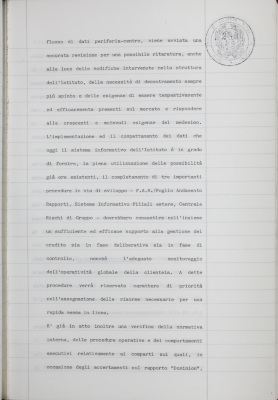 flusso di dati periferia-centro, viene avviata una
accurata revisione per una possibile ritaratura, anche
alla luce delle modifiche intervenute nella struttura
dell'Istituto, della necessità di decentramento sempre
più spinto e delle esigenze di essere tempestivamente
ed efficacemente presenti sul mercato e rispondere
alle crescenti e mutevoli esigenze del medesimo.
L'implementazione ed il completamento dei dati che
oggi il sistema informativo dell'Istituto è in grado
di fornire, la piena utilizzazione delle possibilità
già ora esistenti, il completamento di tre importanti
procedure in via di sviluppo - F.A.R./Foglio Andamento
Rapporti, Sistema Informativo Filiali estere, Centrale
Rischi di Gruppo - dovrebbero consentire nell'insieme
un sufficiente ed efficace supporto alla gestione del
credito sia in fase deliberativa sia in fase di
controllo, nonché l'adeguato monitoraggio
dell'operatività globale della clientela. A dette
procedure verrà riservato carattere di priorità
nell'assegnazione delle risorse necessarie per una
rapida messa in linea.
E' già in atto inoltre una verifica della normativa
interna, delle procedure operative e dei comportamenti
esecutivi relativamente ai comparti sui quali, in
occasione degli accertamenti sul rapporto "Dominion",